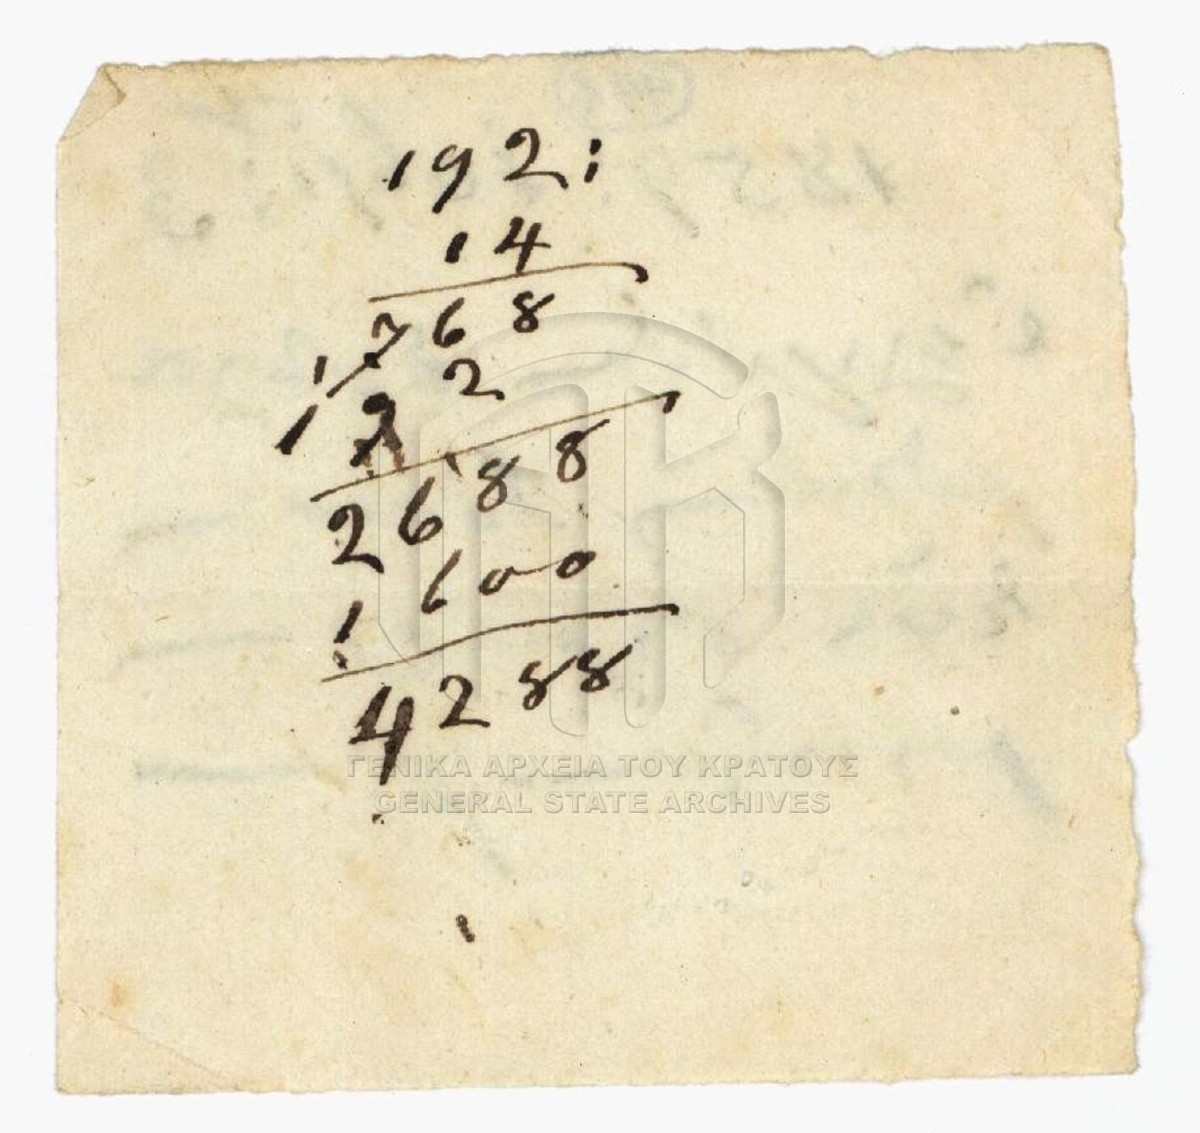 192:
14
768
192
2688
1600
4288
ΓΕΝΙΚΑ ΑΡΧΕΙΑ ΤΟΥ ΚΡΑΤΟΥΣ
GENERAL STATE ARCHIVES